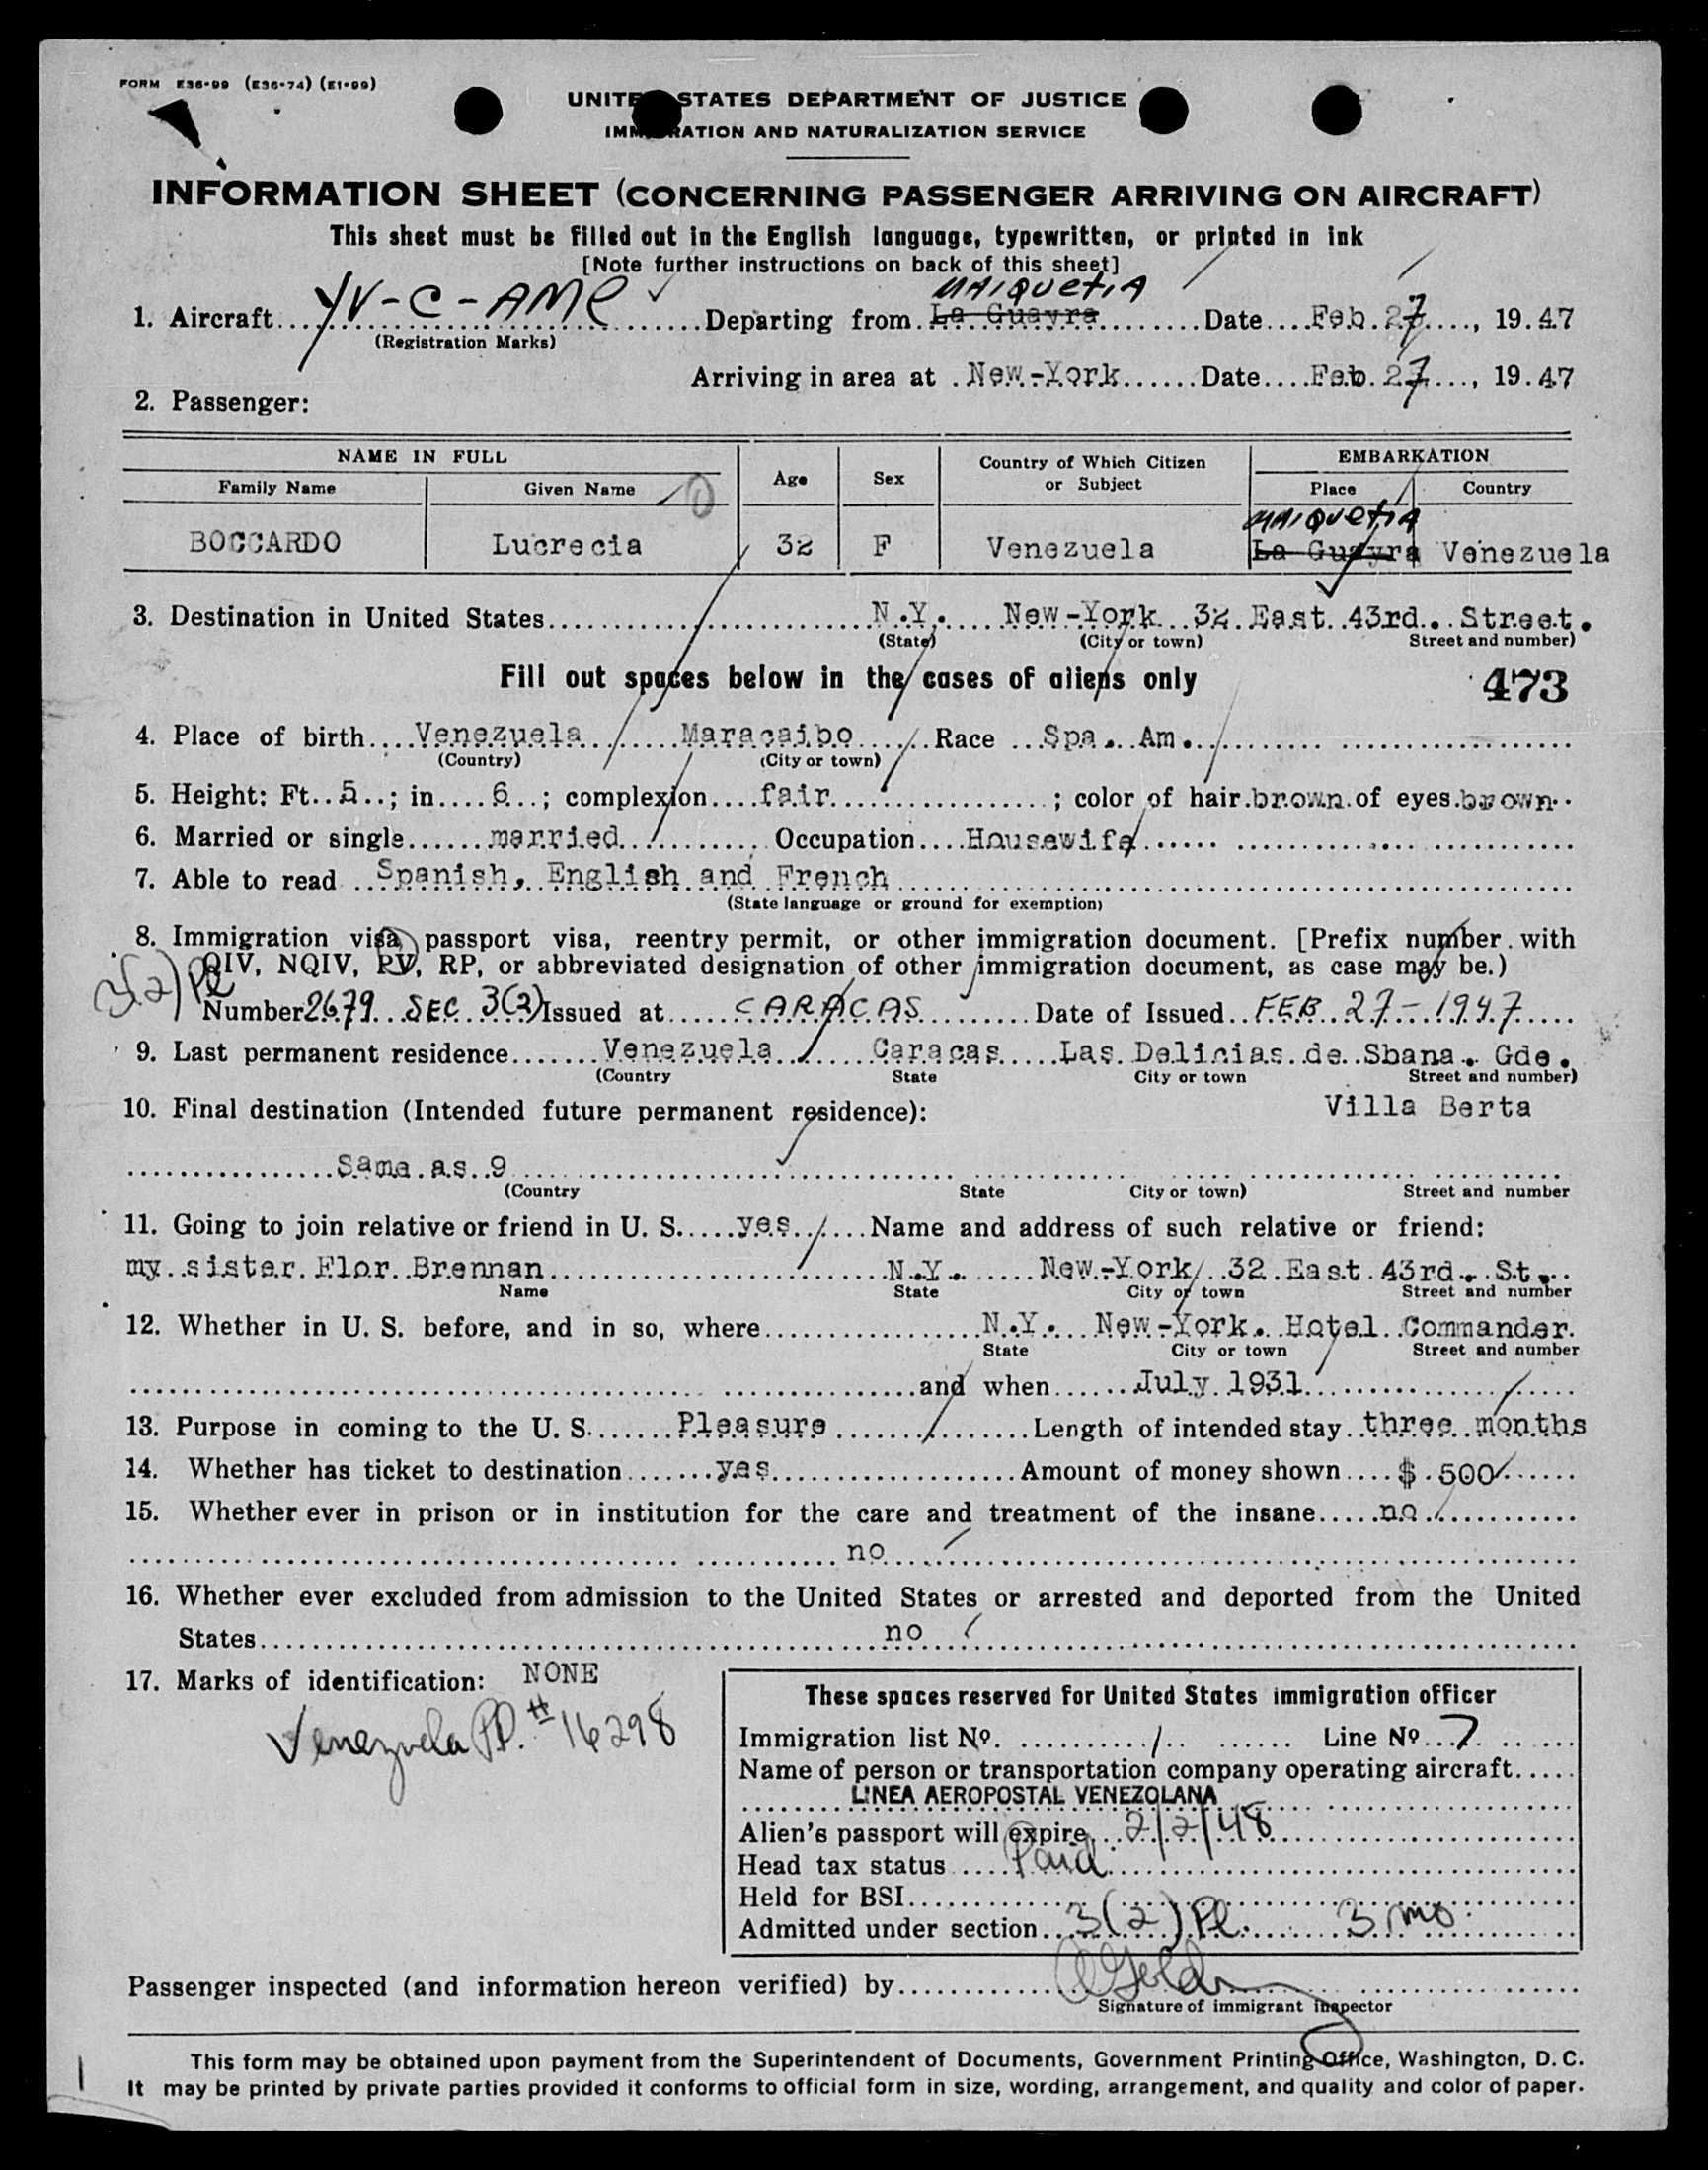 FORM E36-99 (E36-74) (E1-99)
UNITED STATES DEPARTMENT OF JUSTICE
IMMIGRATION AND NATURALIZATION SERVICE
INFORMATION SHEET (CONCERNING PASSENGER ARRIVING ON AIRCRAFT)
This sheet must be filled out in the English language, typewritten, or printed in ink
[Note further instructions on back of this sheet]
MAIQUETIA
1. Aircraft.... YV-C-AMP ....Departing from. La Guayra ....Date....Feb. 27...., 19.47
(Registration Marks)
Arriving in area at . New-York......Date....Feb. 27...., 19.47
2. Passenger:
NAME IN FULL Age Sex Country of Which Citizen or Subject EMBARKATION
Family Name Given Name Place Country
MAIQUETIA
BOCCARDO Lucrecia 32 F Venezuela La Guayra Venezuela
3. Destination in United States.... N.Y. .... New-York 32 East 43rd. Street.
(State) (City or town) Street and number)
Fill out spaces below in the cases of aliens only 473
4. Place of birth....Venezuela.... Maracaibo ....Race ...Spa. Am.
(Country) (City or town)
5. Height: Ft..5..; in....6...; complexion....fair....; color of hair.brown.of eyes.brown..
6. Married or single.......married.... Occupation....Housewife......
7. Able to read ...Spanish, English and French....
(State language or ground for exemption)
8. Immigration visa, passport visa, reentry permit, or other immigration document. [Prefix number with
QIV, NQIV, PV, RP, or abbreviated designation of other immigration document, as case may be.)
3(2) Pl
Number 2679 SEC. 3(2) Issued at.....CARACAS.... Date of Issued..FEB. 27-1947.....
9. Last permanent residence.......Venezuela.... Caracas.....Las Delicias de Sbana. Gde.
(Country State City or town Street and number)
10. Final destination (Intended future permanent residence): Villa Berta
....Same as 9....
(Country State City or town) Street and number
11. Going to join relative or friend in U. S.....yes....Name and address of such relative or friend:
my sister Flor Brennan....N.Y. ......New-York 32 East 43rd. St...
Name State City or town Street and number
12. Whether in U. S. before, and in so, where....N.Y. New-York. Hotel Commander.
State City or town Street and number
....and when......July 1931....
13. Purpose in coming to the U. S.......Pleasure ....Length of intended stay..three months
14. Whether has ticket to destination.......yes....Amount of money shown....$.500......
15. Whether ever in prison or in institution for the care and treatment of the insane.....no....
....no....
16. Whether ever excluded from admission to the United States or arrested and deported from the United
States....no....
17. Marks of identification: NONE
Venezuela PP. # 16298
These spaces reserved for United States immigration officer
Immigration list No. ....1.... Line No...7. ......
Name of person or transportation company operating aircraft.....
LINEA AEROPOSTAL VENEZOLANA
Alien's passport will expire...2/2/48....
Head tax status ....Paid....
Held for BSI....
Admitted under section...3(2) Pl. .... 3 mo.
Passenger inspected (and information hereon verified) by....
Signature of immigrant inspector
This form may be obtained upon payment from the Superintendent of Documents, Government Printing Office, Washington, D. C.
It may be printed by private parties provided it conforms to official form in size, wording, arrangement, and quality and color of paper.